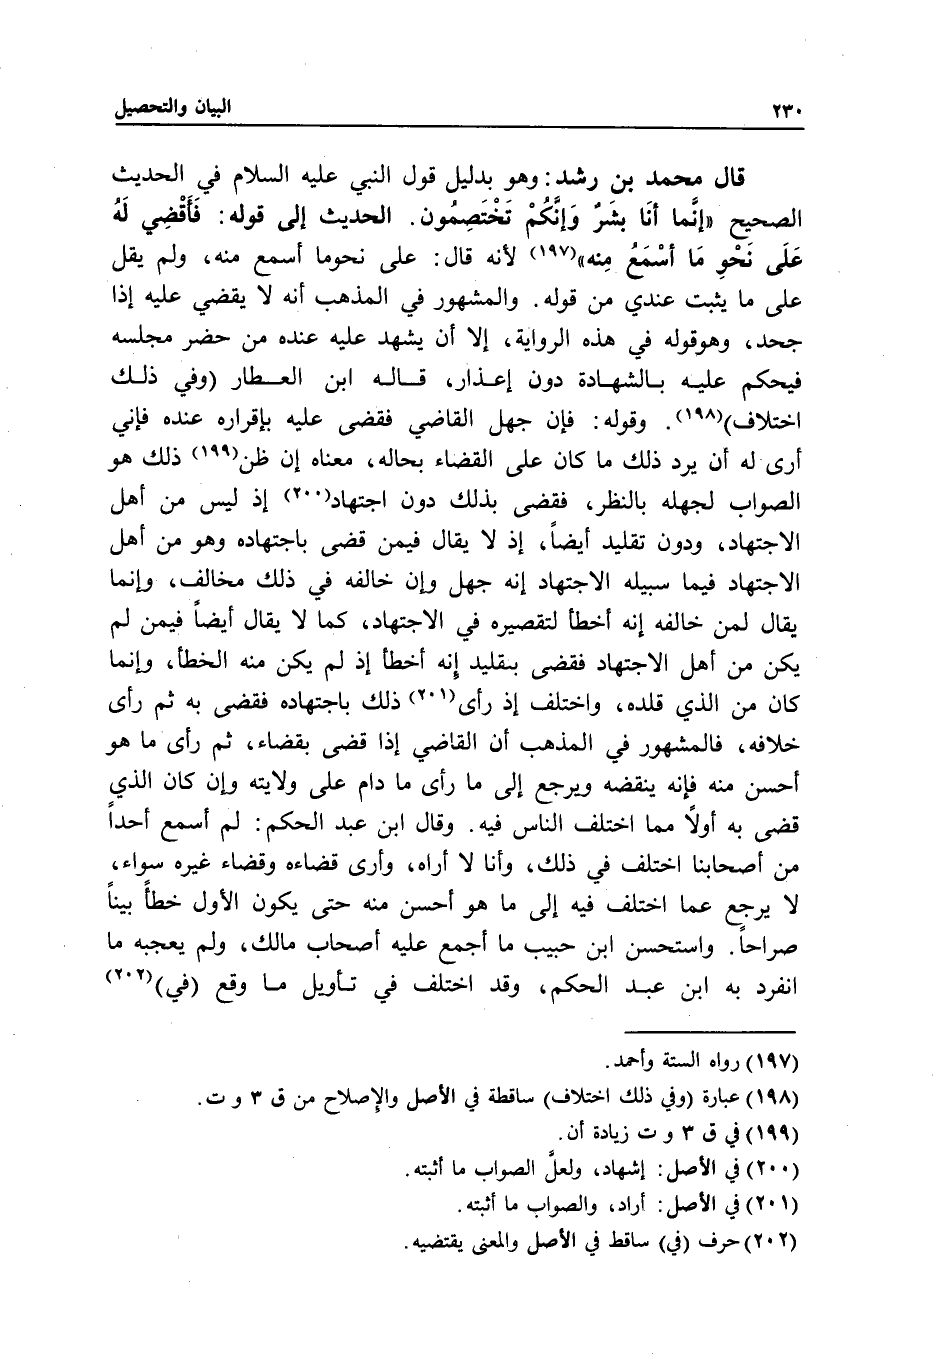 ٢٣٠ البيان والتحصيل
قال محمد بن رشد: وهو بدليل قول النبي عليه السلام في الحديث
الصحيح «إِنَّما أنَا بشَرٌ وَإِنَّكُمْ تَخْتَصِمُون. الحديث إلى قوله: فَأَقْضِي لَهُ
عَلَى نَحْوِ مَا أسْمَعُ مِنه»(١٩٧) لأنه قال: على نحوما أسمع منه، ولم يقل
على ما يثبت عندي من قوله. والمشهور في المذهب أنه لا يقضي عليه إذا
جحد، وهوقوله في هذه الرواية، إلا أن يشهد عليه عنده من حضر مجلسه
فيحكم عليه بالشهادة دون إعذار، قاله ابن العطار (وفي ذلك
اختلاف)(١٩٨). وقوله: فإن جهل القاضي فقضى عليه بإقراره عنده فإني
أرى له أن يرد ذلك ما كان على القضاء بحاله، معناه إن ظن(١٩٩) ذلك هو
الصواب لجهله بالنظر، فقضى بذلك دون اجتهاد(٢٠٠) إذ ليس من أهل
الاجتهاد، ودون تقليد أيضاً، إذ لا يقال فيمن قضى باجتهاده وهو من أهل
الاجتهاد فيما سبيله الاجتهاد إنه جهل وإن خالفه في ذلك مخالف، وإنما
يقال لمن خالفه إنه أخطأ لتقصيره في الاجتهاد، كما لا يقال أيضاً فيمن لم
يكن من أهل الاجتهاد فقضى بتقليد إنه أخطأ إذ لم يكن منه الخطأ، وإنما
كان من الذي قلده، واختلف إذ رأى(٢٠١) ذلك باجتهاده فقضى به ثم رأى
خلافه، فالمشهور في المذهب أن القاضي إذا قضى بقضاء، ثم رأى ما هو
أحسن منه فإنه ينقضه ويرجع إلى ما رأى ما دام على ولايته وإن كان الذي
قضى به أولاً مما اختلف الناس فيه. وقال ابن عبد الحكم: لم أسمع أحداً
من أصحابنا اختلف في ذلك، وأنا لا أراه، وأرى قضاءه وقضاء غيره سواء،
لا يرجع عما اختلف فيه إلى ما هو أحسن منه حتى يكون الأول خطأً بيناً
صراحاً. واستحسن ابن حبيب ما أجمع عليه أصحاب مالك، ولم يعجبه ما
انفرد به ابن عبد الحكم، وقد اختلف في تأويل ما وقع (في)(٢٠٢)
(١٩٧) رواه الستة وأحمد.
(١٩٨) عبارة (وفي ذلك اختلاف) ساقطة في الأصل والإصلاح من ق ٣ و ت.
(١٩٩) في ق ٣ و ت زيادة أن.
(٢٠٠) في الأصل: إشهاد، ولعلَّ الصواب ما أثبته.
(٢٠١) في الأصل: أراد، والصواب ما أثبته.
(٢٠٢) حرف (في) ساقط في الأصل والمعنى يقتضيه.